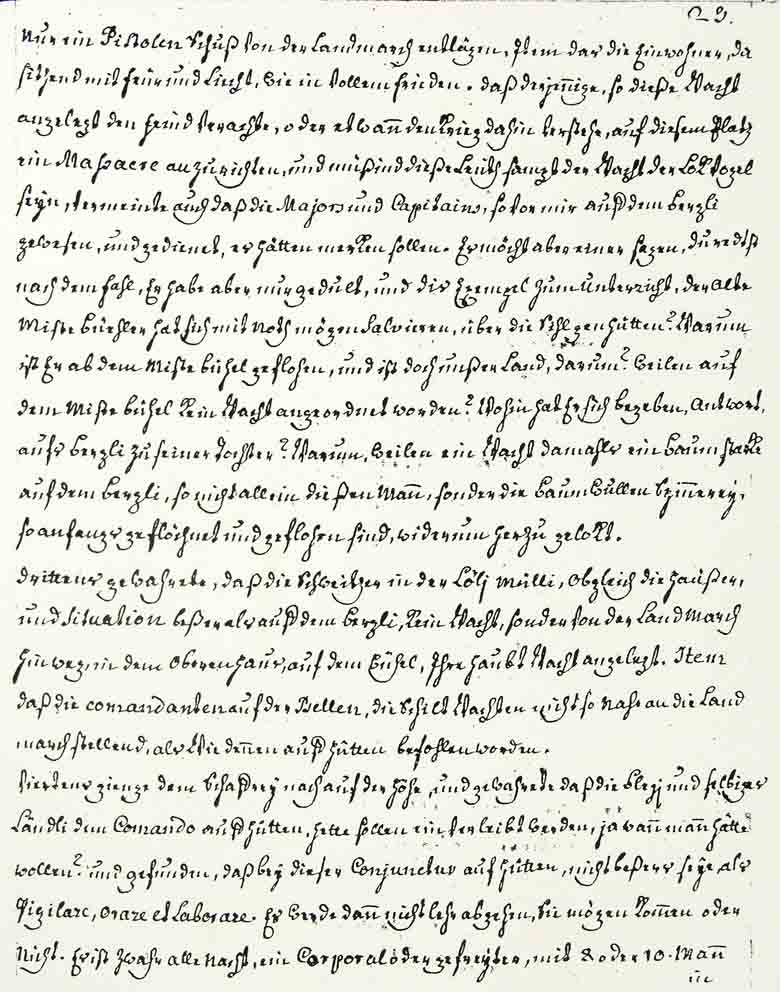 23.
nur ein Pistolen Schuß von der Landmarch entlägen, Item das die Einwohner, da
sitzend mit feür und Liecht, wie in vollem frieden. daß derjenige, so dieße Wacht
angelegt den feind verachte, oder etwann den Krieg dahin verstehe, auf diesem Platz
ein Massacre anzurichten, und müßind dieße Leüth sampt der Wacht der Lokvogel
seyn, vermeinte auch daß die Majors und Capitains, so vor mir auff dem bergli
gewesen, und gedienet, es hätten merken sollen. Es möcht aber einer sagen, du redst
nach dem fahl, Er habe aber nur gedult, und dis Exempel zum Unterricht, der alte
Miste büehler hat sich mit Noth mögen Salvieren, über die hütten? Warum
ist Er ab dem Miste bühel geflohen, und ist doch unßer Land, darum? weilen auf
dem Miste bühel kein Wacht angeordnet worden? Wohin hat Er sich begeben, Antwort,
aufs bergli zu seiner Tochter? Warum, weilen ein Wacht damahls ein baum starke
auf dem bergli, so nicht allein dießen Mann, sonder die baumwullen Spinnerey,
so anfangs geflöchnet und geflohen sind, widerum herzu gelokt.
drittens gewahrete, daß die Schweitzer in der Löli Mülli, obgleich die haüßer,
und Situation beßer als auff dem bergli, kein Wacht, sonder von der Land March
hinweg, in dem Oberen haus, auf dem Bühel, Ihre haubt Wacht angelegt. Item
daß die comandanten auf der Bellen, die Schilt Wachten nicht so Nahe an die Land
march stellend, als wie denen auff hütten befohlen worden.
Viertens gienge dem nach auf der höhe, und gewahrete daß die und selbiges
Ländli dem Comando auff hütten, hette sollen einverleibt werden, ja wann mann hätte
wollen? und gefunden, daß bey dieser Conjunctur auf hütten, nicht beßers seye als
Vigilare, Orare et Laborare. Es werde dann nicht lehr abgehen, Sie mögen kommen oder
Nicht. Er ist zwahr alle Nacht, ein Corporal oder gefreyter, mit 8 oder 10. Mann
in